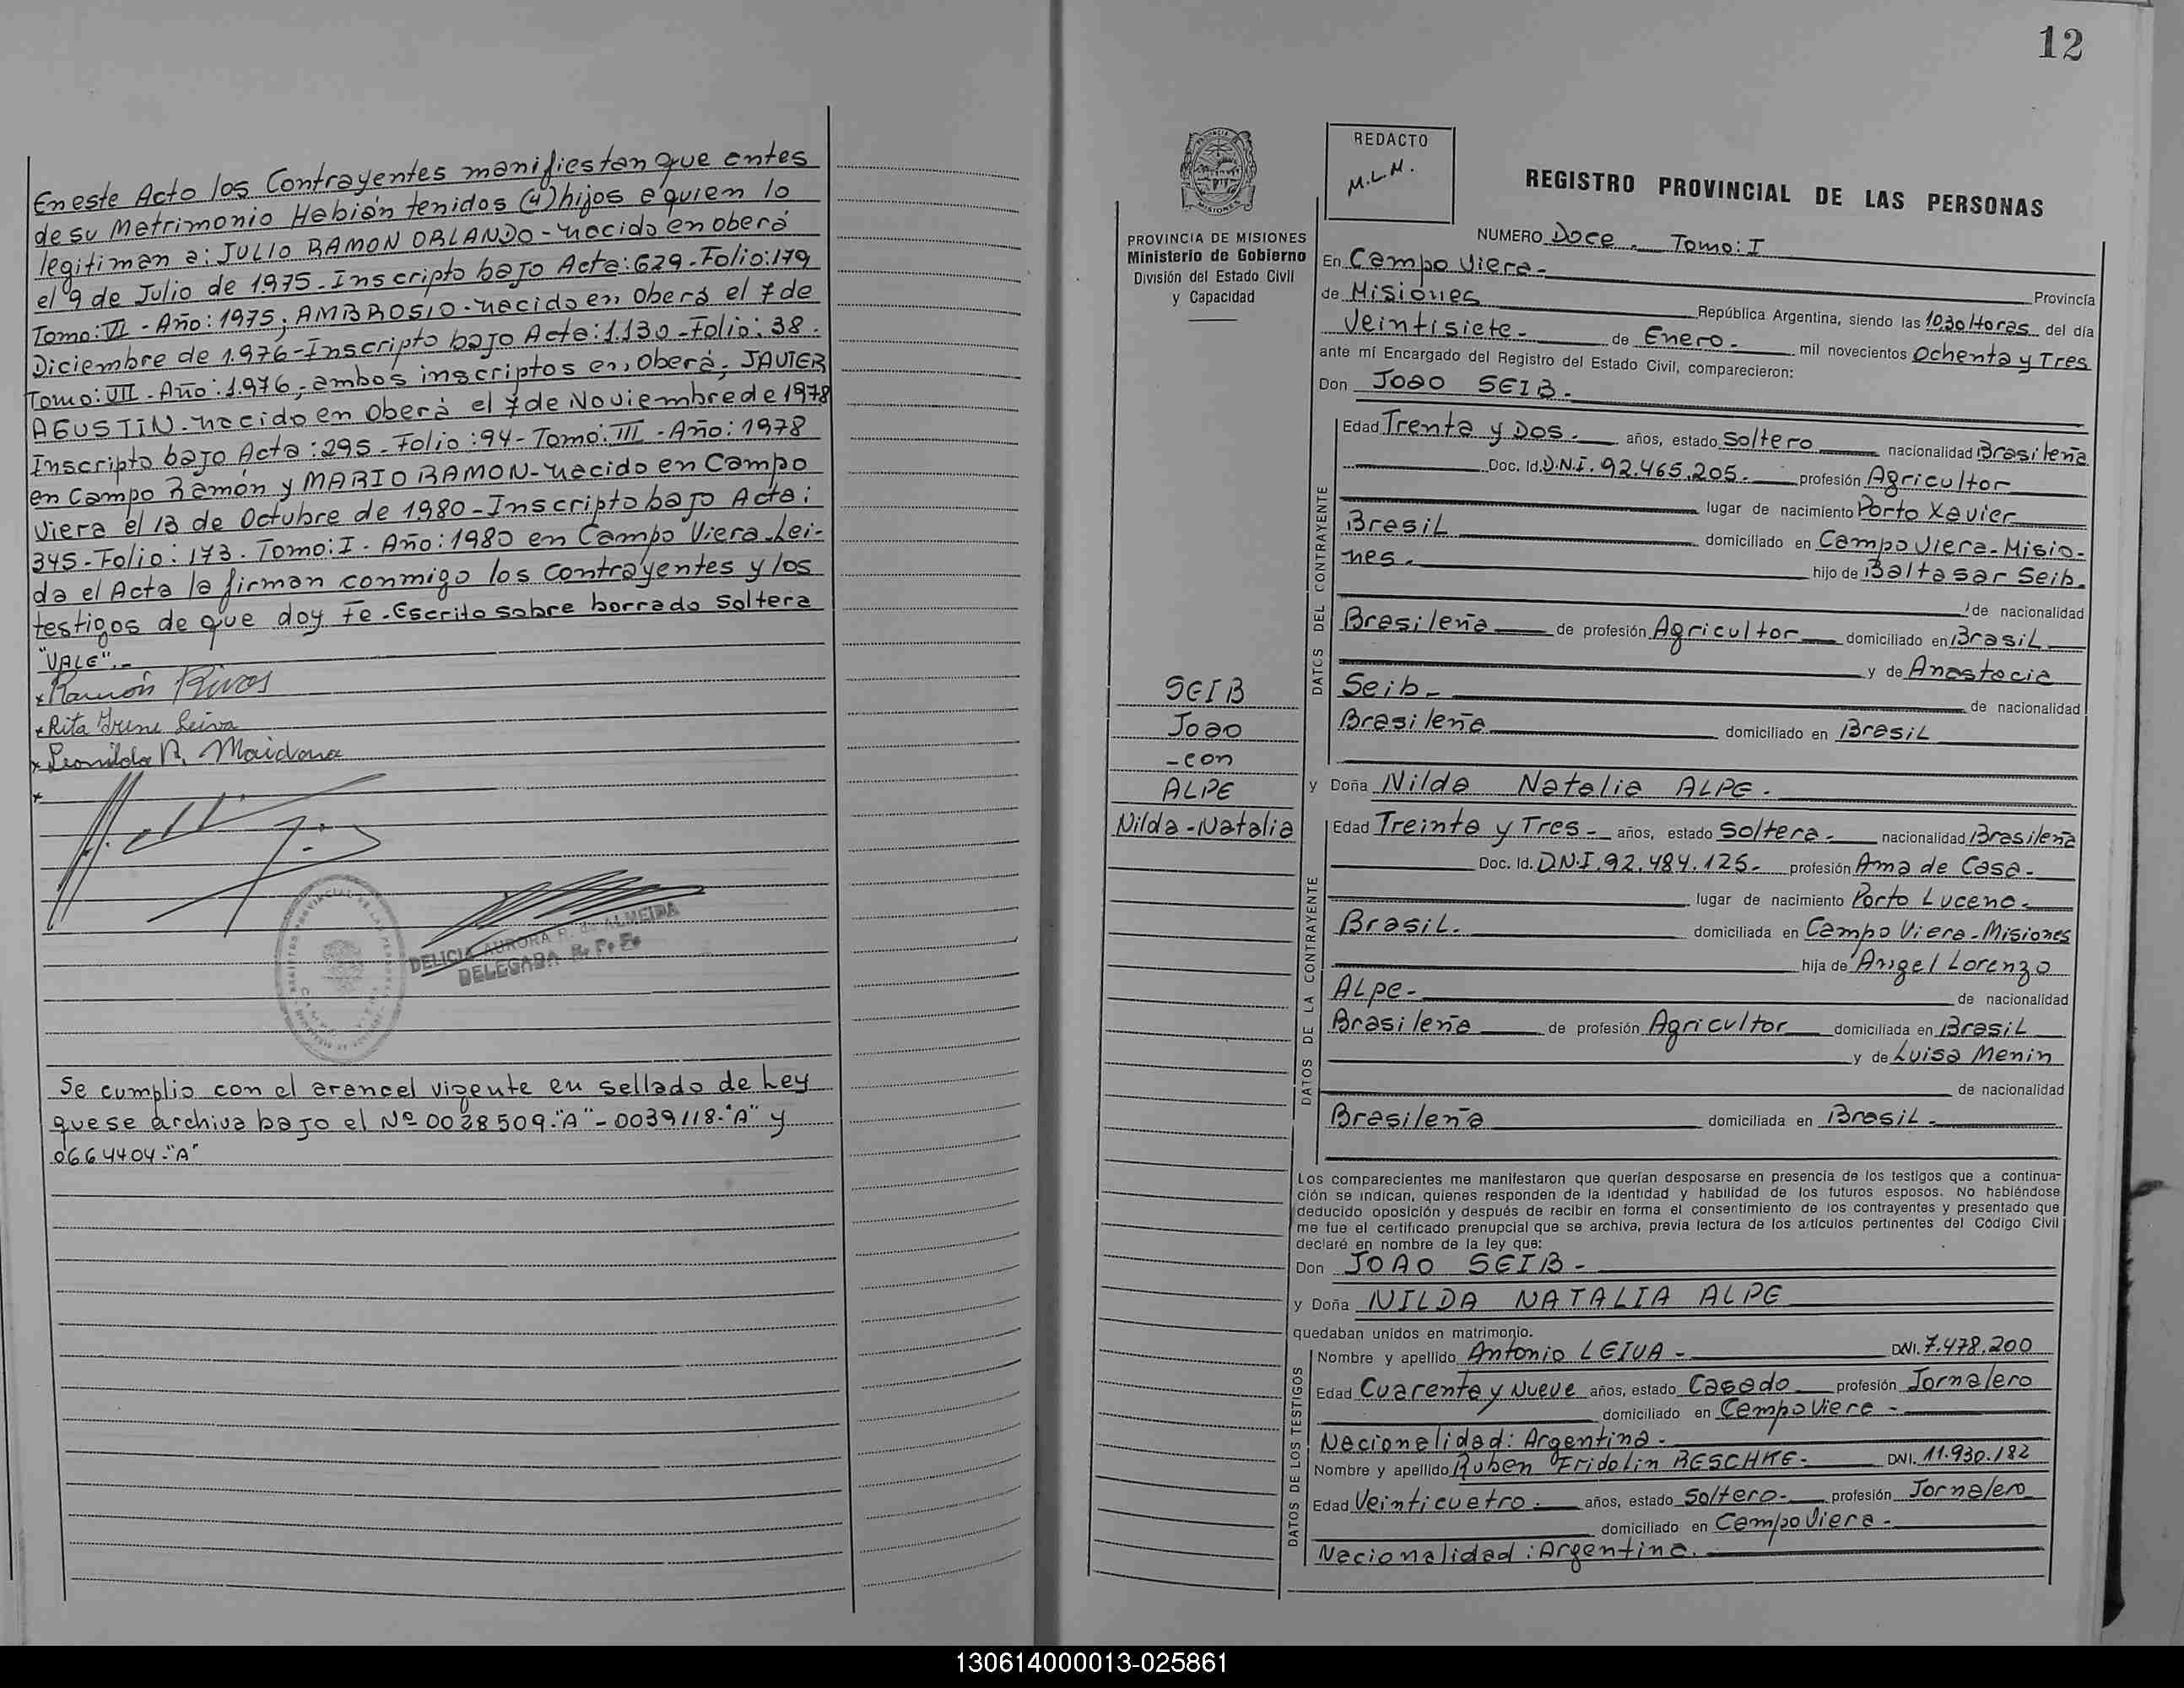 En este Acto los Contrayentes manifiestan que antes
de su Matrimonio Habián tenidos (4) hijos a quien lo
legitiman a: JULIO RAMON ORLANDO - nacido en oberá
el 9 de Julio de 1975 - Inscripto bajo Acta: 629 - Folio: 179
Tomo: VI - Año: 1975; AMBROSIO - nacido en Oberá el 7 de
Diciembre de 1.976 - Inscripto bajo Acta: 1.130 - Folio: 38.
Tomo: VII - Año: 1.976, - ambos inscriptos en, Oberá; JAVIER
AGUSTIN - nacido en Oberá el 7 de Noviembre de 1978
Inscripto bajo Acta: 295 - Folio: 94 - Tomo: III - Año: 1978
en Campo Ramón y MARIO RAMON - nacido en Campo
Viera el 13 de Octubre de 1980 - Inscripto bajo Acta:
345 - Folio: 173. Tomo: I - Año: 1980 en Campo Viera. Lei-
da el Acta la firman conmigo los contrayentes y los
testigos de que doy Fe. Escrito sobre borrado Soltera
"VALE". -
x Ramón Rivas
x Rita Irene Leiva
x Leonilda R. Maidana
x
DELICIA AURORA R. de ALMEIDA
DELEGADA R. P. P.
Se cumplio con el arancel vigente en sellado de Ley
que se archiva bajo el Nº 0028509 - "A" - 0039118 - "A" y
0664404 - "A"
12
PROVINCIA DE MISIONES
Ministerio de Gobierno
División del Estado Civil
y Capacidad
SEIB
Joao
- con
ALPE
Nilda - Natalia
REDACTO
M.L.M.
REGISTRO PROVINCIAL DE LAS PERSONAS
NUMERO Doce. Tomo: I
En Campo Viera - Provincia
de Misiones República Argentina, siendo las 10,30 Horas del día
Veintisiete - de Enero - mil novecientos Ochenta y Tres
ante mí Encargado del Registro del Estado Civil, comparecieron:
Don Joao SEIB -
DATOS DEL CONTRAYENTE
Edad Trenta y Dos - años, estado Soltero nacionalidad Brasileña
Doc. Id. D.N.I. 92.465.205. - profesión Agricultor
lugar de nacimiento Porto Xavier
Brasil domiciliado en Campo Viera - Misio-
nes. hijo de Baltasar Seib.
de nacionalidad
Brasileña de profesión Agricultor domiciliado en Brasil
y de Anastacia
Seib - de nacionalidad
Brasileña domiciliado en Brasil
y Doña Nilda Natalia ALPE -
DATOS DE LA CONTRAYENTE
Edad Treinta y Tres - años, estado Soltera - nacionalidad Brasileña
Doc. Id. D.N.I. 92.484.125 - profesión Ama de Casa -
lugar de nacimiento Porto Lucena -
Brasil. domiciliada en Campo Viera - Misiones
hija de Angel Lorenzo
Alpe - de nacionalidad
Brasileña de profesión Agricultor domiciliada en Brasil
y de Luisa Menin
de nacionalidad
Brasileña domiciliada en Brasil -
Los comparecientes me manifestaron que querían desposarse en presencia de los testigos que a continua-
ción se indican, quienes responden de la identidad y habilidad de los futuros esposos. No habiéndose
deducido oposición y después de recibir en forma el consentimiento de los contrayentes y presentado que
me fue el certificado prenupcial que se archiva, previa lectura de los artículos pertinentes del Código Civil
declaré en nombre de la ley que:
Don JOAO SEIB -
y Doña NILDA NATALIA ALPE
quedaban unidos en matrimonio.
DATOS DE LOS TESTIGOS
Nombre y apellido Antonio LEIVA - DNI. 7.478.200
Edad Cuarenta y Nueve años, estado Casado profesión Jornalero
domiciliado en Campo Viera -
Nacionalidad: Argentina -
Nombre y apellido Ruben Fridolin RESCHKE - DNI. 11.930.182
Edad Veinticuatro - años, estado Soltero - profesión Jornalero
domiciliado en Campo Viera -
Nacionalidad: Argentina.
130614000013-025861